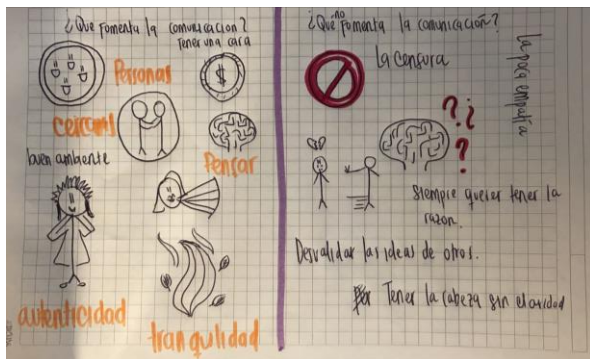 ¿Que fomenta la comunicacion?
Tener una cara
Personas
cercanas
buen ambiente
Pensar
autenticidad
tranquilidad
¿Qué no fomenta la comunicación?
La Censura
La poca empatia
??
?
Siempre querer tener la
razon.
Desvalidar las ideas de otros.
Tener la cabeza sin claridad